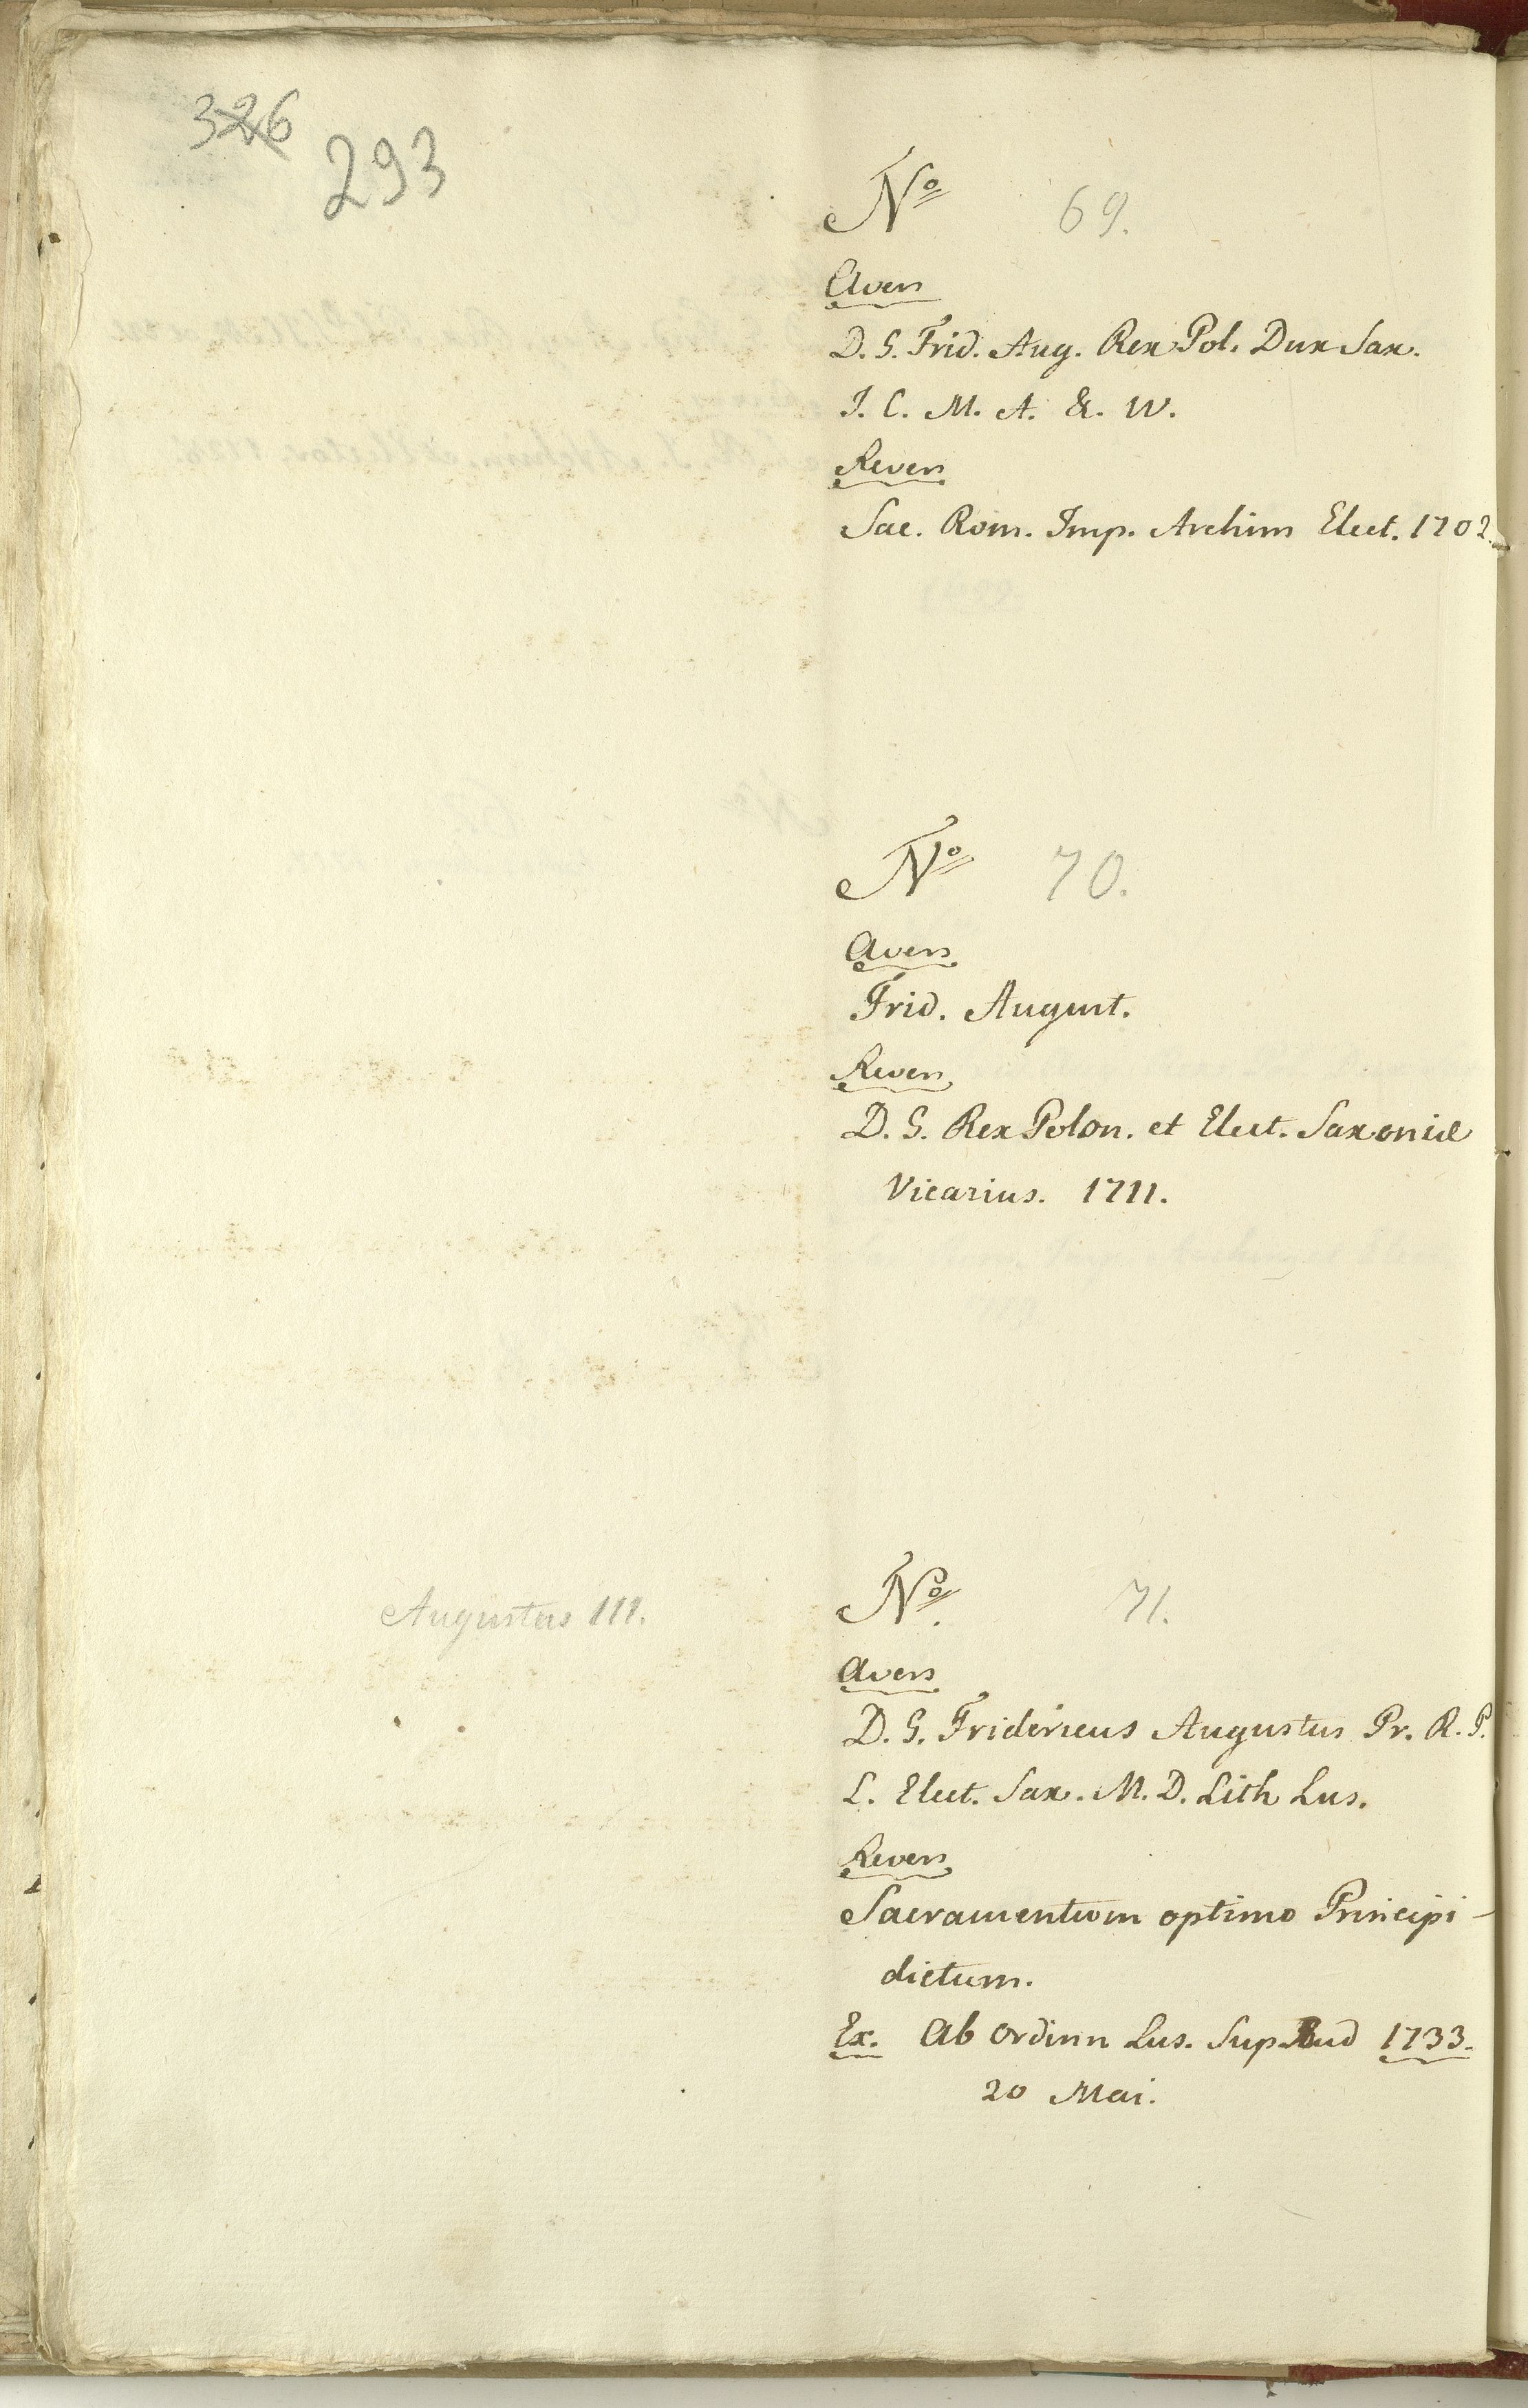 326
293
No 69.
Avers
D. G. Frid. Aug. Rex Pol. Dux Sax.
I. C. M. A. & W.
Revers
Sac. Rom. Imp. Archim Elect. 1702.
No 70.
Avers
Frid. August.
Revers
D. G. Rex Polon. et Elect. Saxoniæ
Vicarius. 1711.
Augustus III.
No. 71.
Avers
D. G. Fridericus Augustus Pr. R. P.
L. Elect. Sax. M. D. Lith Lus.
Revers
Sacramentum optimo Principi -
dictum.
Ex. Ab Ordinn Lus. Sup. Bud 1733.
20 Mai.